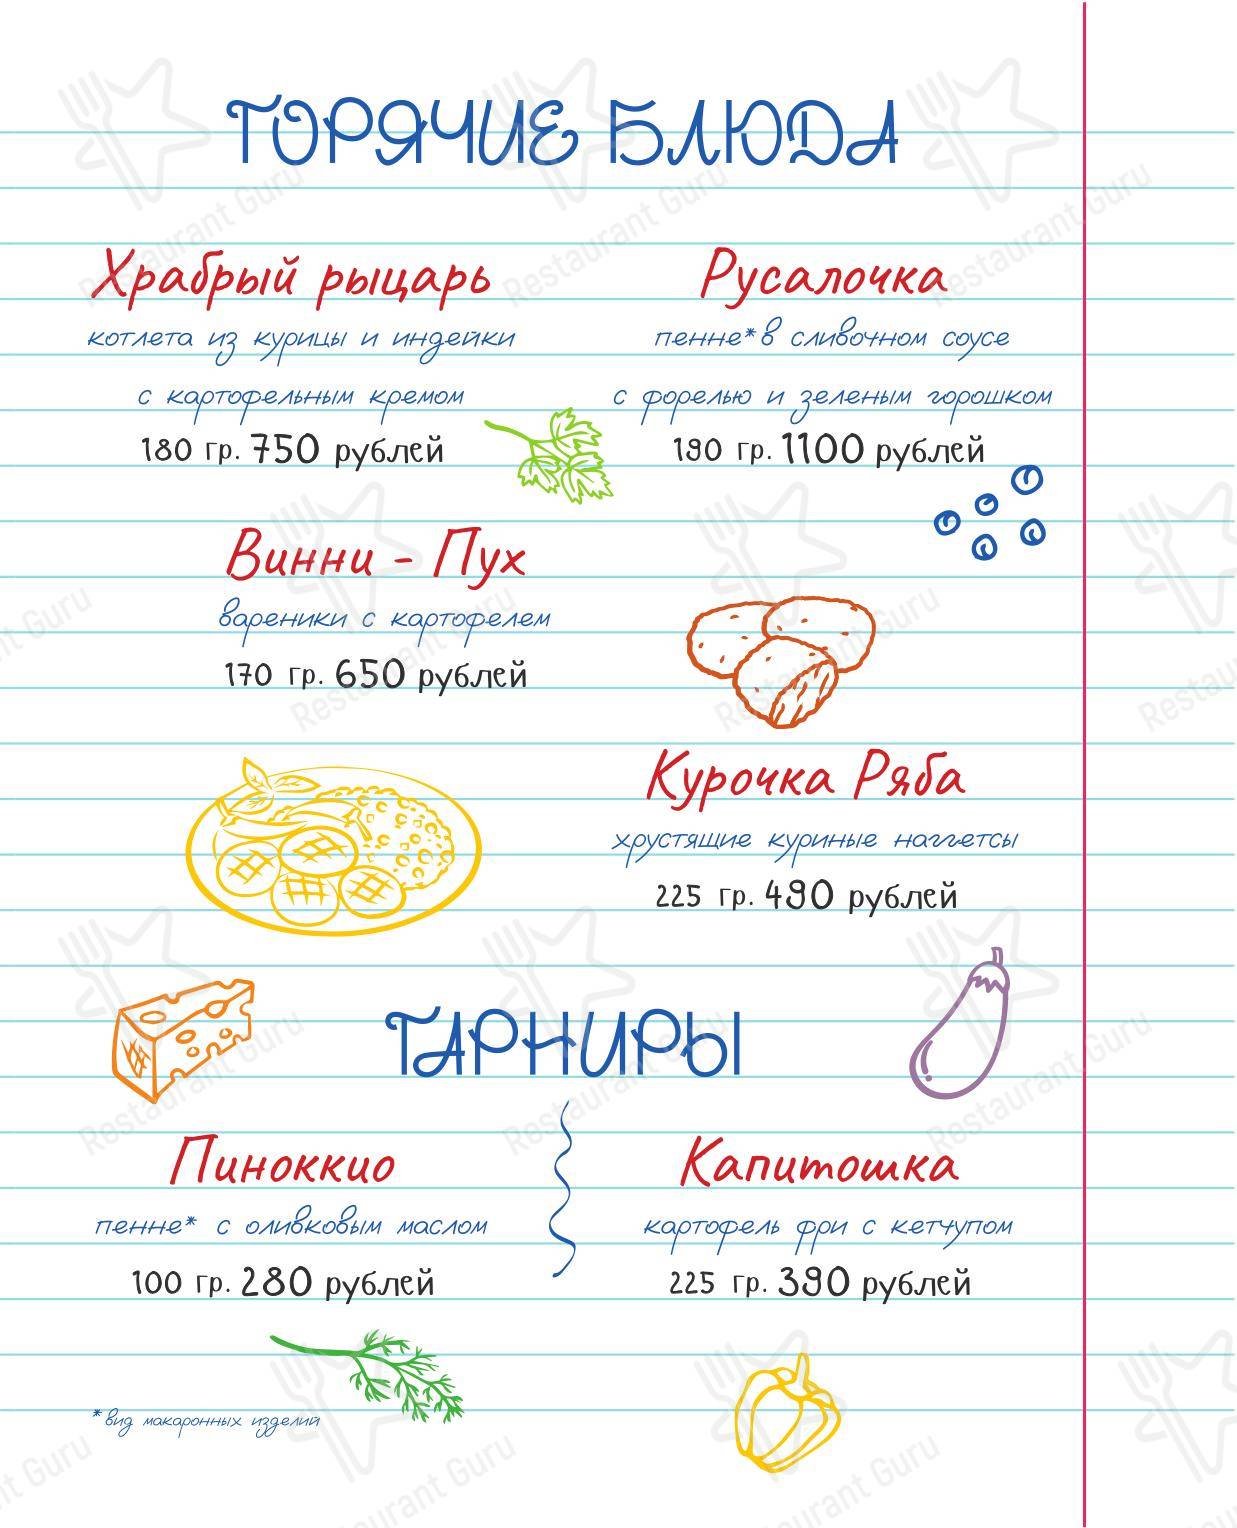 ГОРЯЧИЕ БЛЮДА
Храбрый рыцарь
котлета из курицы и индейки
с картофельным кремом
180 гр. 750 рублей
Русалочка
пенне* в сливочном соусе
с форелью и зеленым горошком
190 гр. 1100 рублей
Винни - Пух
вареники с картофелем
170 гр. 650 рублей
Курочка Ряба
хрустящие куриные наггетсы
225 гр. 490 рублей
ГАРНИРЫ
Пиноккио
пенне* с оливковым маслом
100 гр. 280 рублей
Капитошка
картофель фри с кетчупом
225 гр. 390 рублей
*вид макаронных изделий
Restaurant Guru